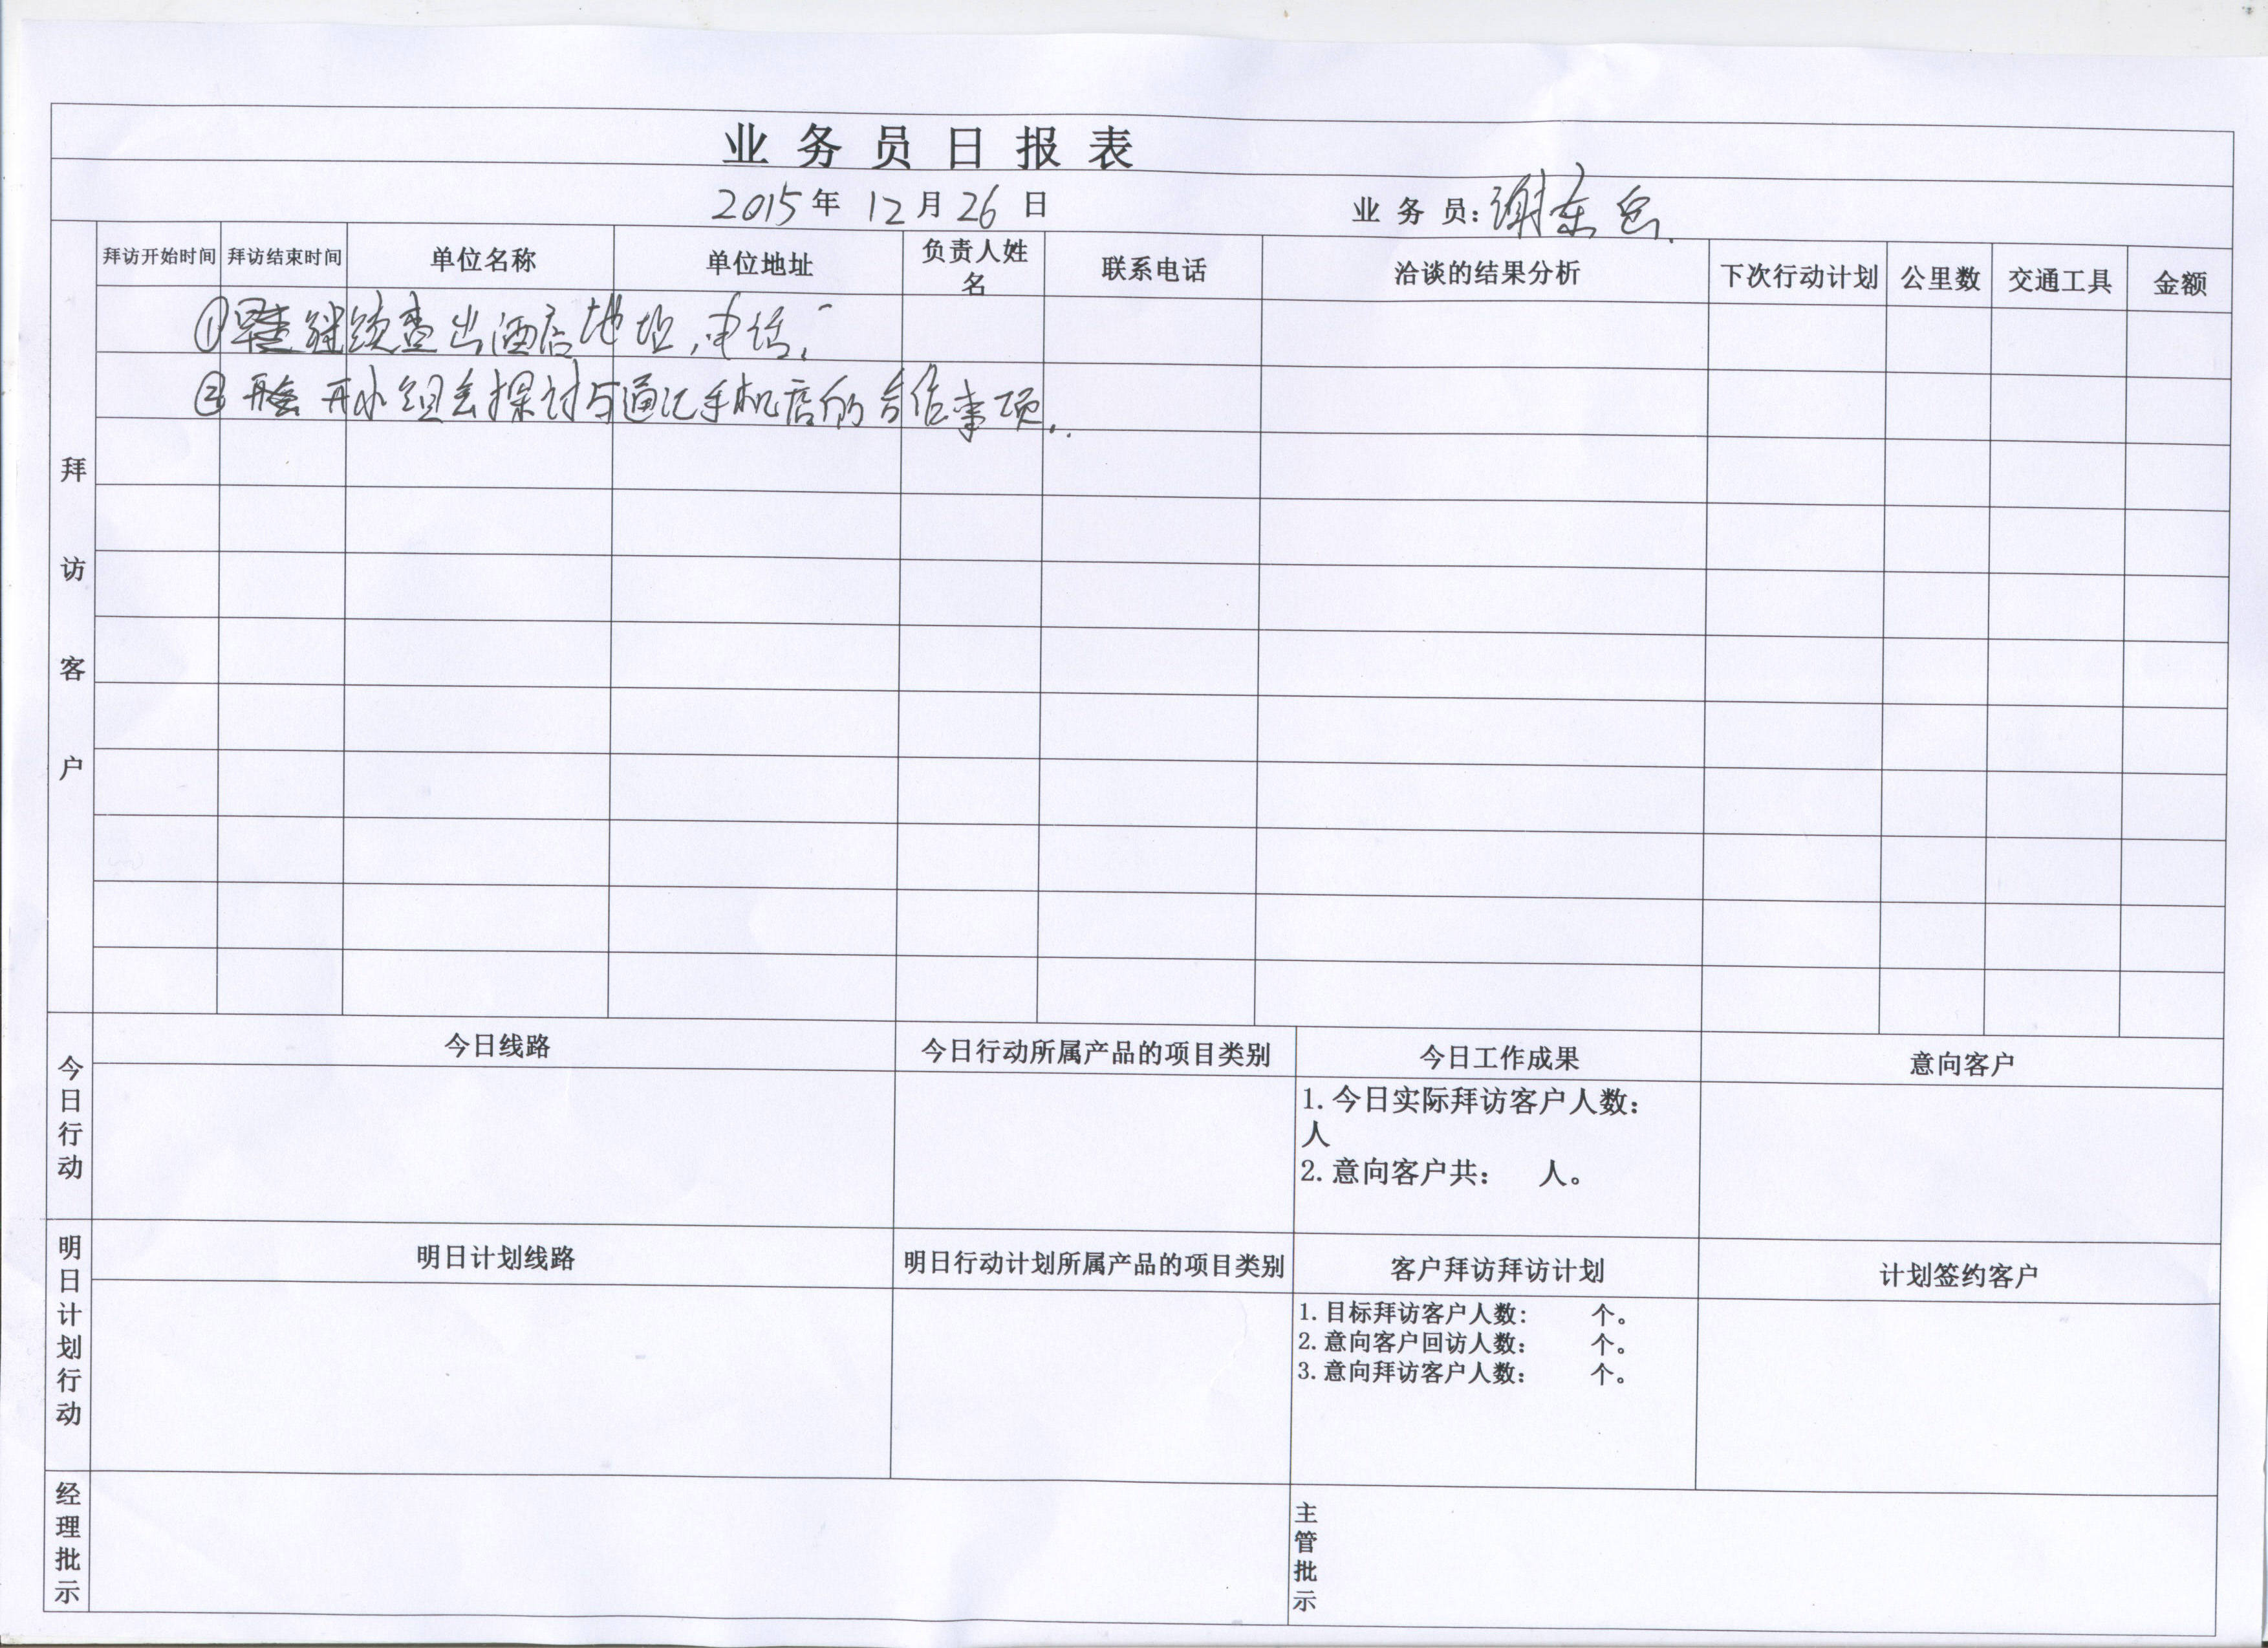 业务员日报表
2015年 12月26日 业务员:谢东岳.
拜访客户
拜访开始时间 拜访结束时间 单位名称 单位地址 负责人姓名 联系电话 洽谈的结果分析 下次行动计划 公里数 交通工具 金额
① 继续查出酒店地址,电话.
② 开小组会探讨与通讯手机店的合作事项.
今日行动
今日线路 今日行动所属产品的项目类别 今日工作成果 意向客户
1.今日实际拜访客户人数:
人
2.意向客户共: 人。
明日计划行动
明日计划线路 明日行动计划所属产品的项目类别 客户拜访拜访计划 计划签约客户
1.目标拜访客户人数: 个。
2.意向客户回访人数: 个。
3.意向拜访客户人数: 个。
经理批示
主管批示